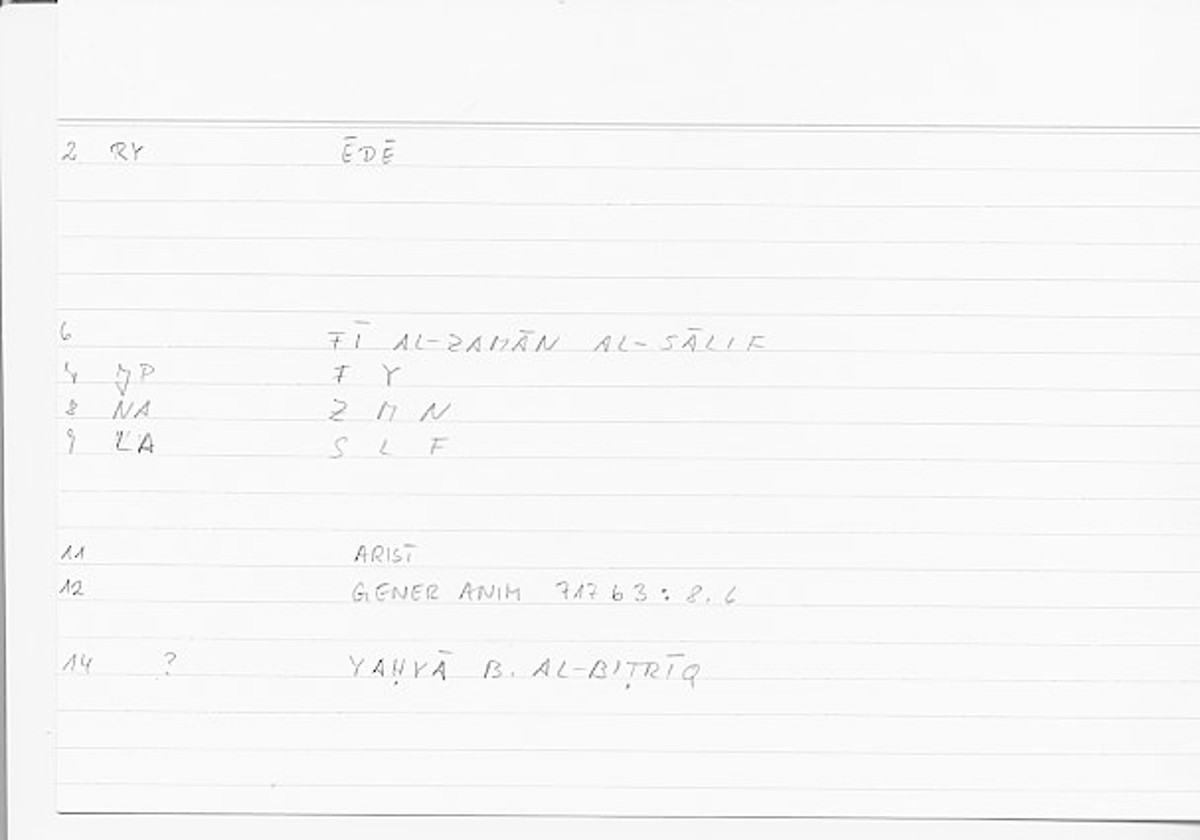 2 RY ĒDĒ
6 FĪ AL-ZAMĀN AL-SĀLIF
4 JP F Y
8 NA Z M N
9 LA S L F
11 ARIST
12 GENER ANIM 717 b 3 : 8.6
14 ? YAḤYĀ B. AL-BIṬRĪQ